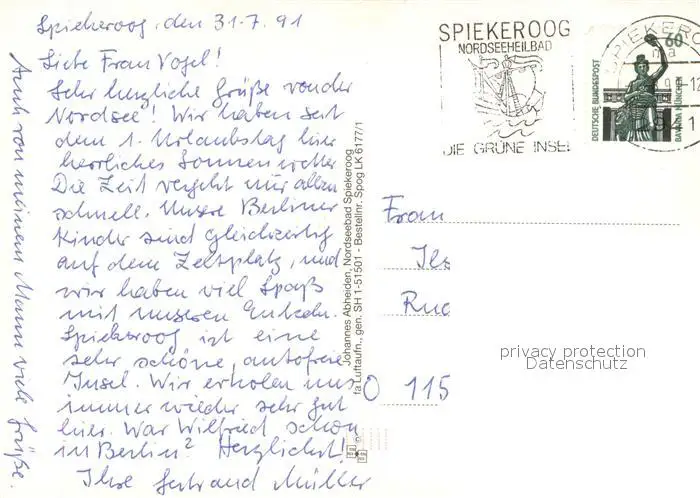 Spiekeroog, den 31.7.91
Liebe Frau Vogel!
Sehr herzliche Grüße von der
Nordsee! Wir haben seit
dem 1. Urlaubstag hier
herrliches Sonnenwetter
Die Zeit vergeht nur allzu
schnell. Unsere Berliner
Kinder sind gleichzeitig
auf dem Zeltplatz, und
wir haben viel Spaß
mit unseren Enkeln.
Spiekeroog ist eine
sehr schöne, autofreie
Insel. Wir erholen uns
immer wieder sehr gut
hier. War Wilfried schon
in Berlin? Herzlichst!
Ihre Gertraud Müller
Auch von meinem Mann viele Grüße.
Johannes Abheiden, Nordseebad Spiekeroog
fa Luftaufn., gen. SH 1-51501 - Bestellnr. Spog LK 6177/1
SPIEKEROOG
NORDSEEHEILBAD
DIE GRÜNE INSEL
SPIEKERO
60
DEUTSCHE BUNDESPOST
BAVARIA MÜNCHEN
Frau
Ils
Rud
O 115
privacy protection
Datenschutz